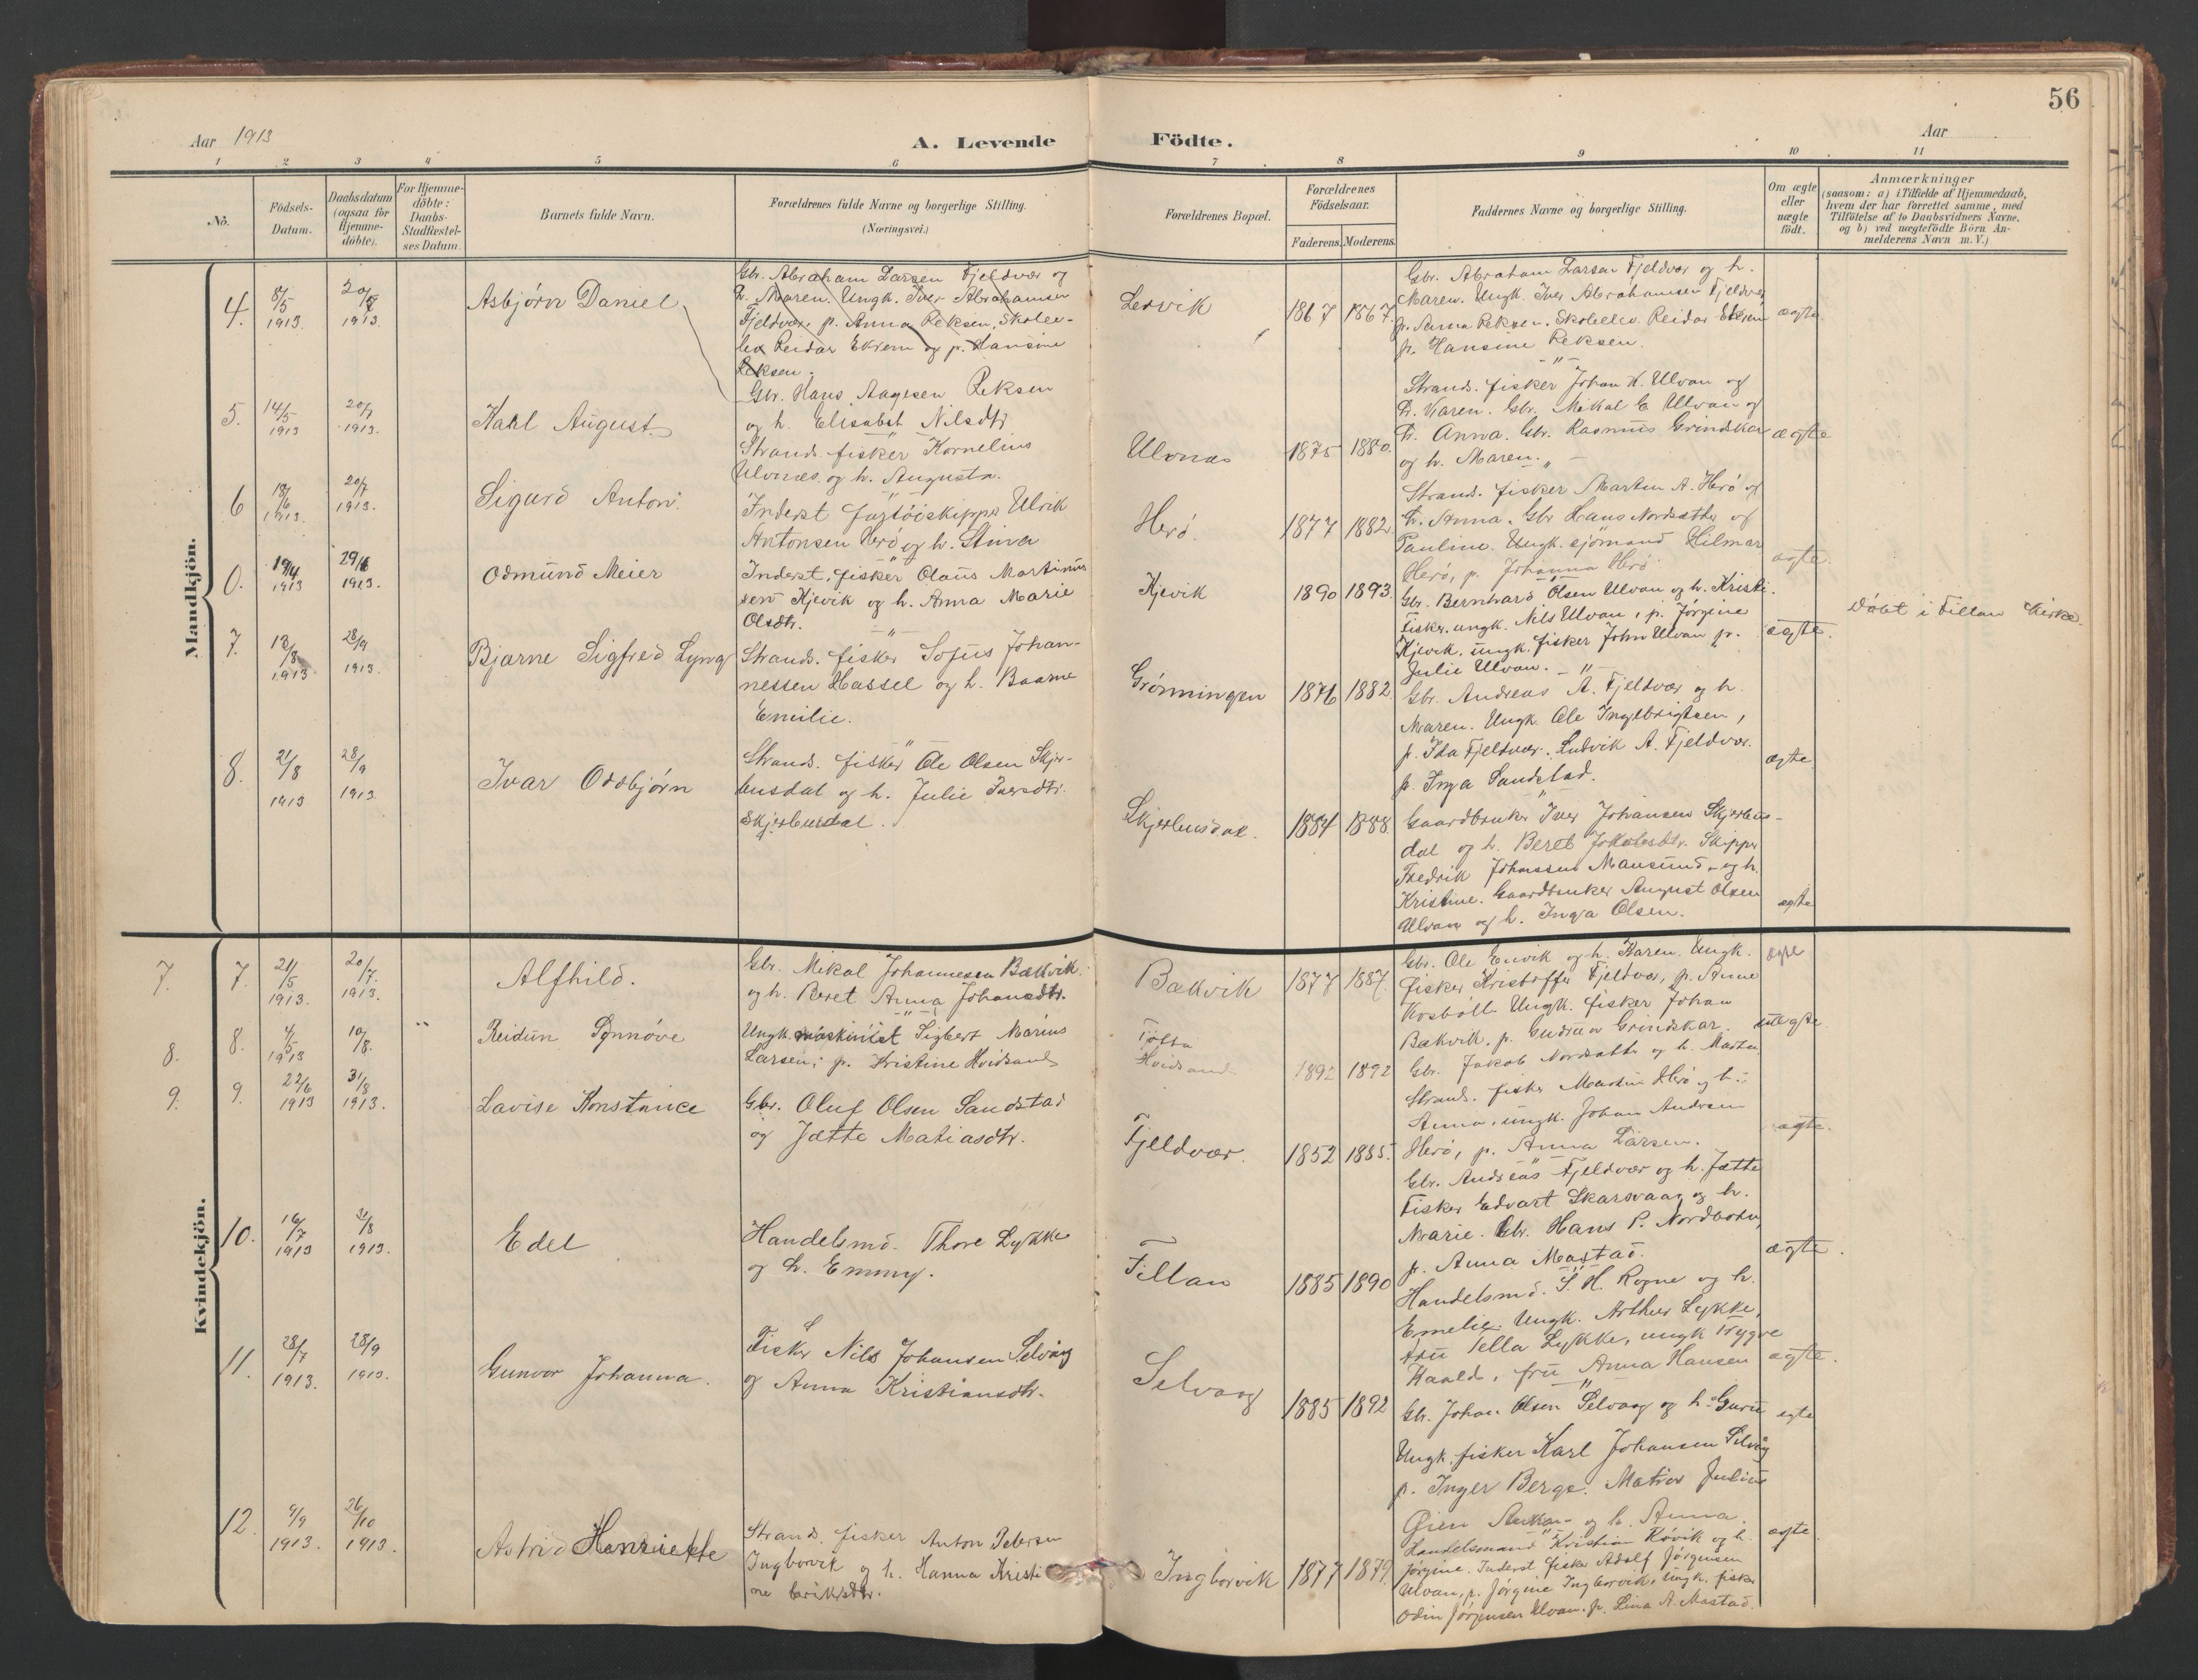 56
Aar 1913
A. Levende
Födte.
Aar
1 2 3 4 5 6 7 8 9 10 11
No.
Födsels-
Datum.
Daabsdatum
(ogsaa for
Hjemme-
döbte).
For Hjemme-
döbte:
Daabs-
Stadfæstel-
ses Datum.
Barnets fulde Navn.
Forældrenes fulde Navne og borgerlige Stilling.
(Næringsvei.)
Forældrenes Bopæl.
Forældrenes
Födselsaar.
Faderens. Moderens.
Faddernes Navne og borgerlige Stilling.
Om ægte
eller
uægte
födt.
Anmærkninger
(saasom: a) i Tilfælde af Hjemmedaab,
hvem der har forrettet samme, med
Tilföielse af to Daabsvidners Navne,
og b) ved uægtefödte Börn An-
melderens Navn m. V.)
Mandkjön.
4.
8/5
1913.
20/7
1913.
Asbjørn Daniel
Gbr. Abraham Larsen Fjeldvær og
h. Maren. Ungk. Iver Abrahamsen
Fjeldvær, p. Anna Reksen, Skolee-
lev Reidar Ekrem og p. Hansine
Reksen.
Gbr. Hans Aagesen Reksen
og h. Elisabet Nilsdtr
Lervik
1867 1867
Gbr. Abraham Larsen Fjeldvær og h.
Maren. Ungk. Iver Abrahamsen Fjeldvær
p. Anna Reksen. Skoleelev Reidar Ekrem
p. Hansine Reksen.
ægte
5.
14/5
1913
20/7
1913.
Karl August
Strands. fisker Kornelius
Ulvnæs og h. Augusta.
Ulvnæs
1875 1880.
Strands. fisker Johan K. Ulvan og
h. Karen. Gbr. Mikal E Ulvan og
h. Anna. Gbr. Rasmus Grindskar
og h. Maren.
ægte
6
18/6
1913.
20/7
1913.
Sigurd Anton.
Inderst fartöiskipper Ulrik
Antonsen Herö og h. Stina
Herö.
1877 1882
Strands. fisker Martin A. Herö og
h. Anna. Gbr Hans Nordsæther og
Pauline. Ungk. sjömand Hilmar
Herö, p. Johanna Herö.
ægte.
0.
19/4
1913
29/6
1913.
Odmund Meier
Inderst. fisker Olaus Martinus
sen Kjevik og h. Anna Marie
Olsdtr.
Kjevik
1890 1893.
Gbr. Bernhard Olsen Ulvan og h. Kristi.
Fisker, ungk. Nils Ulvan, p. Jørgine
Kjevik, ungk. fisker John Ulvan p.
Julie Ulvan.
ægte.
Döbt i Fillan Kirke.
7.
13/8
1913
28/9
1913.
Bjarne Sigfred Lyng
Strands. fisker Sofus Johan-
nessen Hassel og h. Baarne
Emilie.
Grönningen
1876 1882
Gbr. Andreas A. Fjeldvær og h.
Maren. Ungk. Ole Ingebrigtsen,
p. Ida Fjeldvær. Ludvik A. Fjeldvær.
p. Inga Sandstad.
ægte
8.
21/8
1913
28/9
1913
Ivar Oddbjørn
Strands. fisker Ole Olsen Skjer-
busdal og h. Julie Iversdtr.
Skjerbusdal.
Skjerbusdal.
1884 1888.
Gaardbruker Iver Johansen Skjerbus-
dal og h. Beret Jakobsdtr. Skipper
Fredrik Johansen Mausund og h.
Kristine. Gaardbruker August Olsen
Ulvan og h. Inga Olsen.
ægte
Kvindekjön.
7. 7.
21/5
1913.
20/7.
1913.
Alfhild.
Gbr. Mikal Johannesen Bækvik.
og h. Beret Anna Johansdtr.
Bækvik
1877 1887.
Gbr. Ole Envik og h. Karen. Ungk.
fisker Kristoffer Fjeldvær, p. Anne
Ungk. fisker Johan
Bækvik. p. Gudrun Grindskar.
8. 8.
4/5
1913
10/8.
Reidun Synnöve
Ungk. maskinist Sigbert Marius
Larsen; p. Kristine Hvidsand
Töfta
Hvidsand
1892 1892
uægte
Gbr. Jakob Nordsætter og h. Marta.
Strands. fisker Martin Herö og h.
Anna, ungk. Johan Andresen
Herö, p. Anna Larsen.
9. 9.
22/6
1913
31/8
1913.
Lavise Konstance
Gbr. Oluf Olsen Sandstad
og Jætte Matiasdtr.
Fjeldvær.
1852 1885.
Gbr. Andreas Fjeldvær og h. Jætte
Fisker Edvart Skarsvaag og h.
Marie. Gbr. Hans P. Nordbotn,
p. Anna Mastad.
ægte.
10.
16/7
1913
31/8
1913.
Edel
Handelsmd. Thore Lykke
og h. Emmy.
Fillan
1885 1890
Handelsmd. S. H. Rogne og h.
Emelie. Ungk. Arthur Lykke,
fru Tella Lykke, ungk Trygve
Kaald, fru Anna Hansen
ægte.
11.
28/7
1913.
28/9
1913.
Gunvor Johanna.
Fisker Nils Johansen Selvåg
og Anna Kristiansdtr.
Selvaag
1885 1892
Gbr. Johan Olsen Selvaag og h. Guru
Ungk. fisker Karl Johansen Selvåg
p. Inger Berge. Matros Julius
Öien og h. Anna.
ægte.
12.
9/9
1913.
26/10
1913.
Astrid Henriette
Strands. fisker Anton Petersen
Ingborvik og h. Hanna Kristi
ne Eriksdtr.
Ingborvik
1877 1879.
Handelsmand Kristian Rövik og h.
Jørgine. Inderst fisker Adolf Jörgensen
Ulvan, p. Jørgine Ingborvik, ungk. fisker
Odin Jørgensen Ulvan. p. Lina A. Mastad.
ægte.